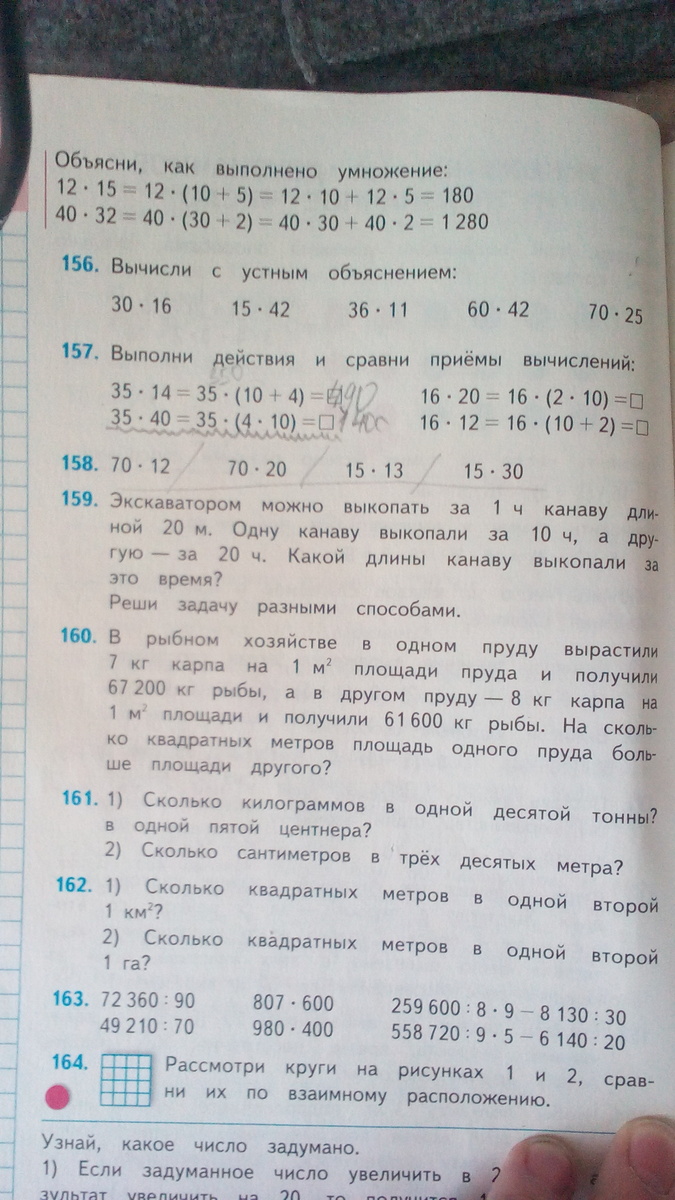 Объясни, как выполнено умножение:
12 · 15 = 12 · (10 + 5) = 12 · 10 + 12 · 5 = 180
40 · 32 = 40 · (30 + 2) = 40 · 30 + 40 · 2 = 1 280
156. Вычисли с устным объяснением:
30 · 16 15 · 42 36 · 11 60 · 42 70 · 25
157. Выполни действия и сравни приёмы вычислений:
35 · 14 = 35 · (10 + 4) = □ 490 16 · 20 = 16 · (2 · 10) = □
35 · 40 = 35 · (4 · 10) = □ 1400 16 · 12 = 16 · (10 + 2) = □
158. 70 · 12 70 · 20 15 · 13 15 · 30
159. Экскаватором можно выкопать за 1 ч канаву дли-
ной 20 м. Одну канаву выкопали за 10 ч, а дру-
гую — за 20 ч. Какой длины канаву выкопали за
это время?
Реши задачу разными способами.
160. В рыбном хозяйстве в одном пруду вырастили
7 кг карпа на 1 м² площади пруда и получили
67 200 кг рыбы, а в другом пруду — 8 кг карпа на
1 м² площади и получили 61 600 кг рыбы. На сколь-
ко квадратных метров площадь одного пруда боль-
ше площади другого?
161. 1) Сколько килограммов в одной десятой тонны?
в одной пятой центнера?
2) Сколько сантиметров в трёх десятых метра?
162. 1) Сколько квадратных метров в одной второй
1 км²?
2) Сколько квадратных метров в одной второй
1 га?
163. 72 360 : 90 807 · 600 259 600 : 8 · 9 − 8 130 : 30
49 210 : 70 980 · 400 558 720 : 9 · 5 − 6 140 : 20
164. Рассмотри круги на рисунках 1 и 2, срав-
ни их по взаимному расположению.
Узнай, какое число задумано.
1) Если задуманное число увеличить в 2
зультат увеличить на 20, то получится